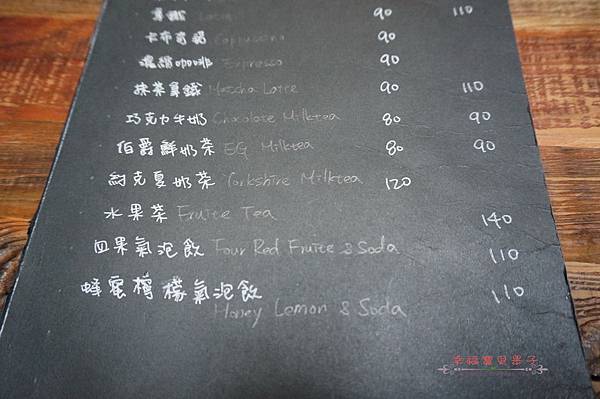 拿鐵 Latte 90 110
卡布奇諾 Cappuccino 90
濃縮咖啡 Espresso 90
抹茶拿鐵 Matcha Latte 90 110
巧克力牛奶 Chocolate Milktea 80 90
伯爵鮮奶茶 EG Milktea 80 90
約克夏奶茶 Yorkshire Milktea 120
水果茶 Fruite Tea 140
四果氣泡飲 Four Red Fruite & Soda 110
蜂蜜檸檬氣泡飲 110
Honey Lemon & Soda
幸福寶貝果子